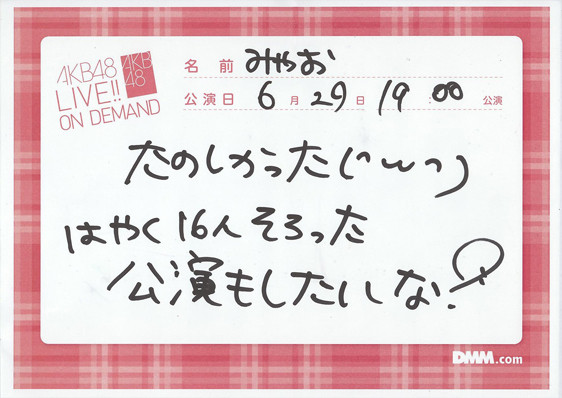 AKB48
LIVE!!
ON DEMAND
AKB
48
名前 みやお
公演日 6月29日 19:00 公演
たのしかった(^ω^)
はやく16人そろった
公演もしたいな!
DMM.com